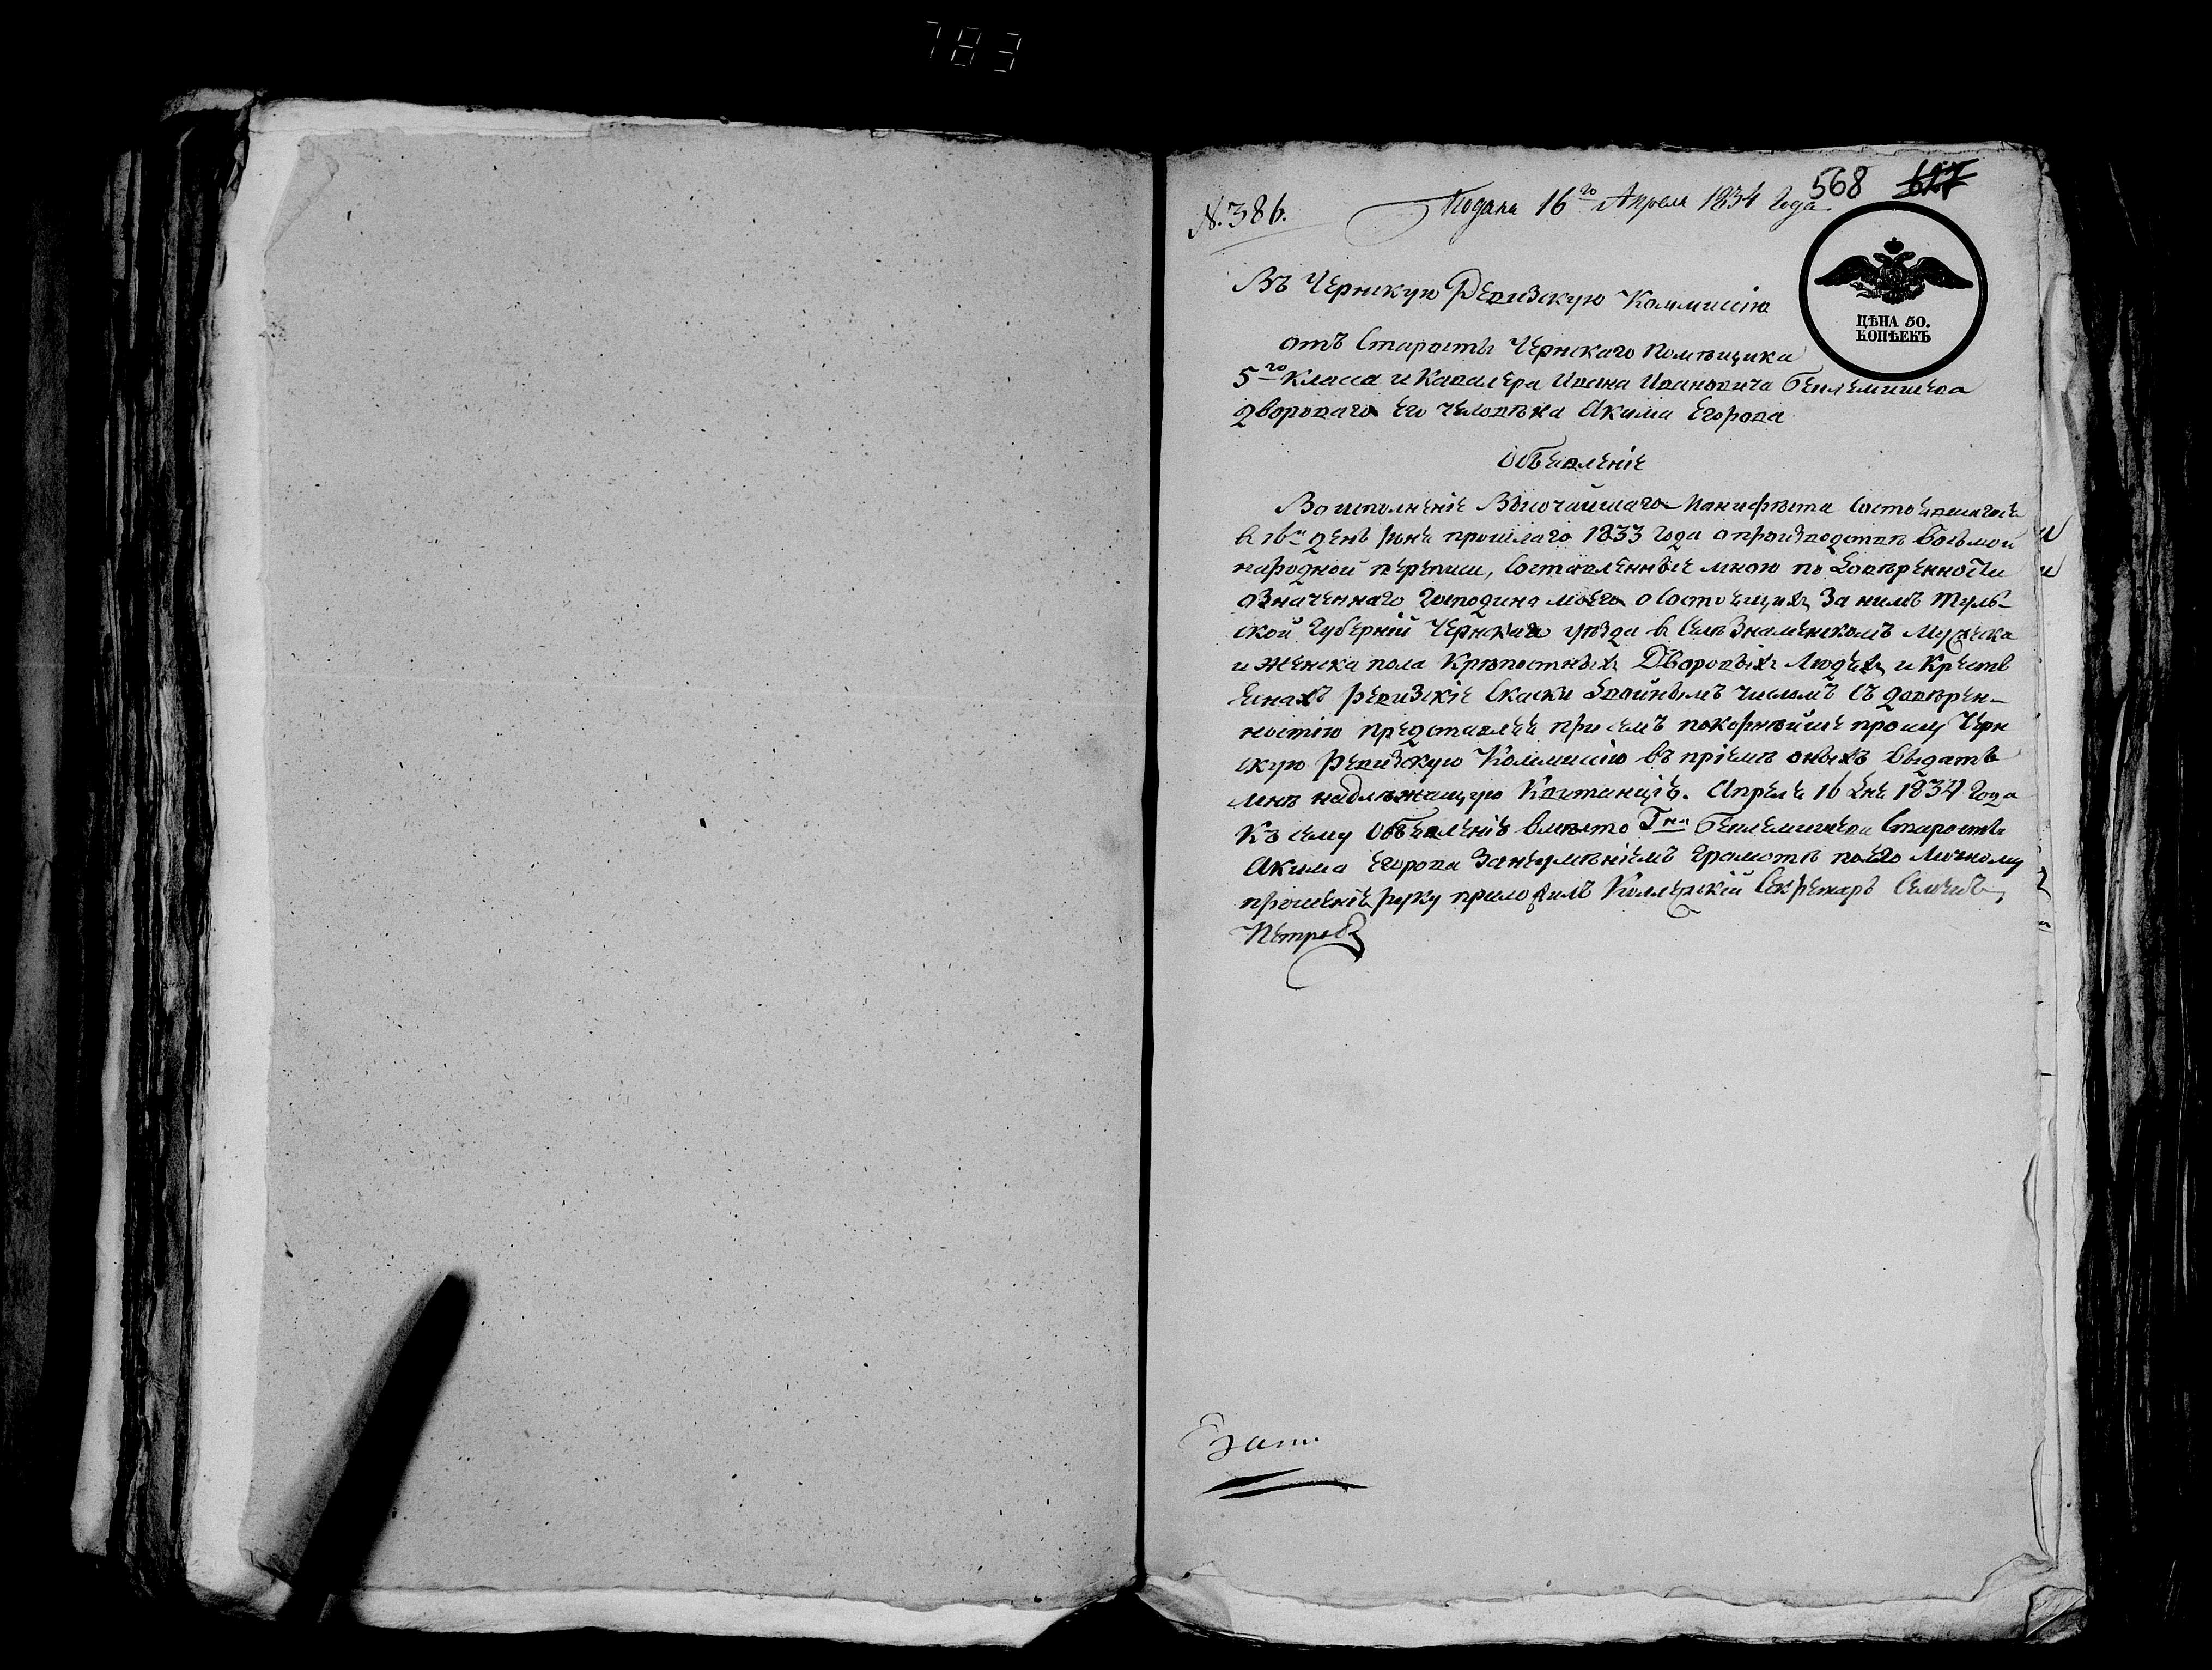 783
568 627
№ 386. Подана 16го Апреля 1834 Года
ЦѢНА 50.
КОПѢЕКЪ
Въ Чернскую Ревизскую Коммиссію
отъ Старосты Чернскаго Помѣщика
5го Класса и Кавалера Ивана Ивановича Беклемишева
дворовага его человѣка Акима Егорова
Объевленіе
Во исполненіе Высочайшаго Манифѣста состоевшагося
в 16й день Июне прошлаго 1833 Года о произвотстве Восьмой
народной переписи, Составленные мною по Довѣренности
означеннаго Господина моего о состоещихъ за нимъ туль-
ской Губерніи Чернскаго уезда в Селѣ Знаменскомъ Мужеска
и Женска пола Крѣпостныхъ Дворовыхъ Людехъ и Кресть
енахъ Ревизскіе Скаски Двойнымъ числомъ съ довѣрен-
ностію представлее при семъ покорнейше прошу Черн
скую Ревизскую Коммиссію въ пріеме оныхъ выдать
мнѣ надлѣжащую Квитанцію. Апреле 16 Дне 1834 Года
Къ сему Объевленію вмѣсто Гна Беклемишева Старосты
Акима Егорова Занеумѣніемъ Грамотѣ поего Личному
прошенію руку приложилъ Коллежскій Секретарь Семенъ
Петровъ